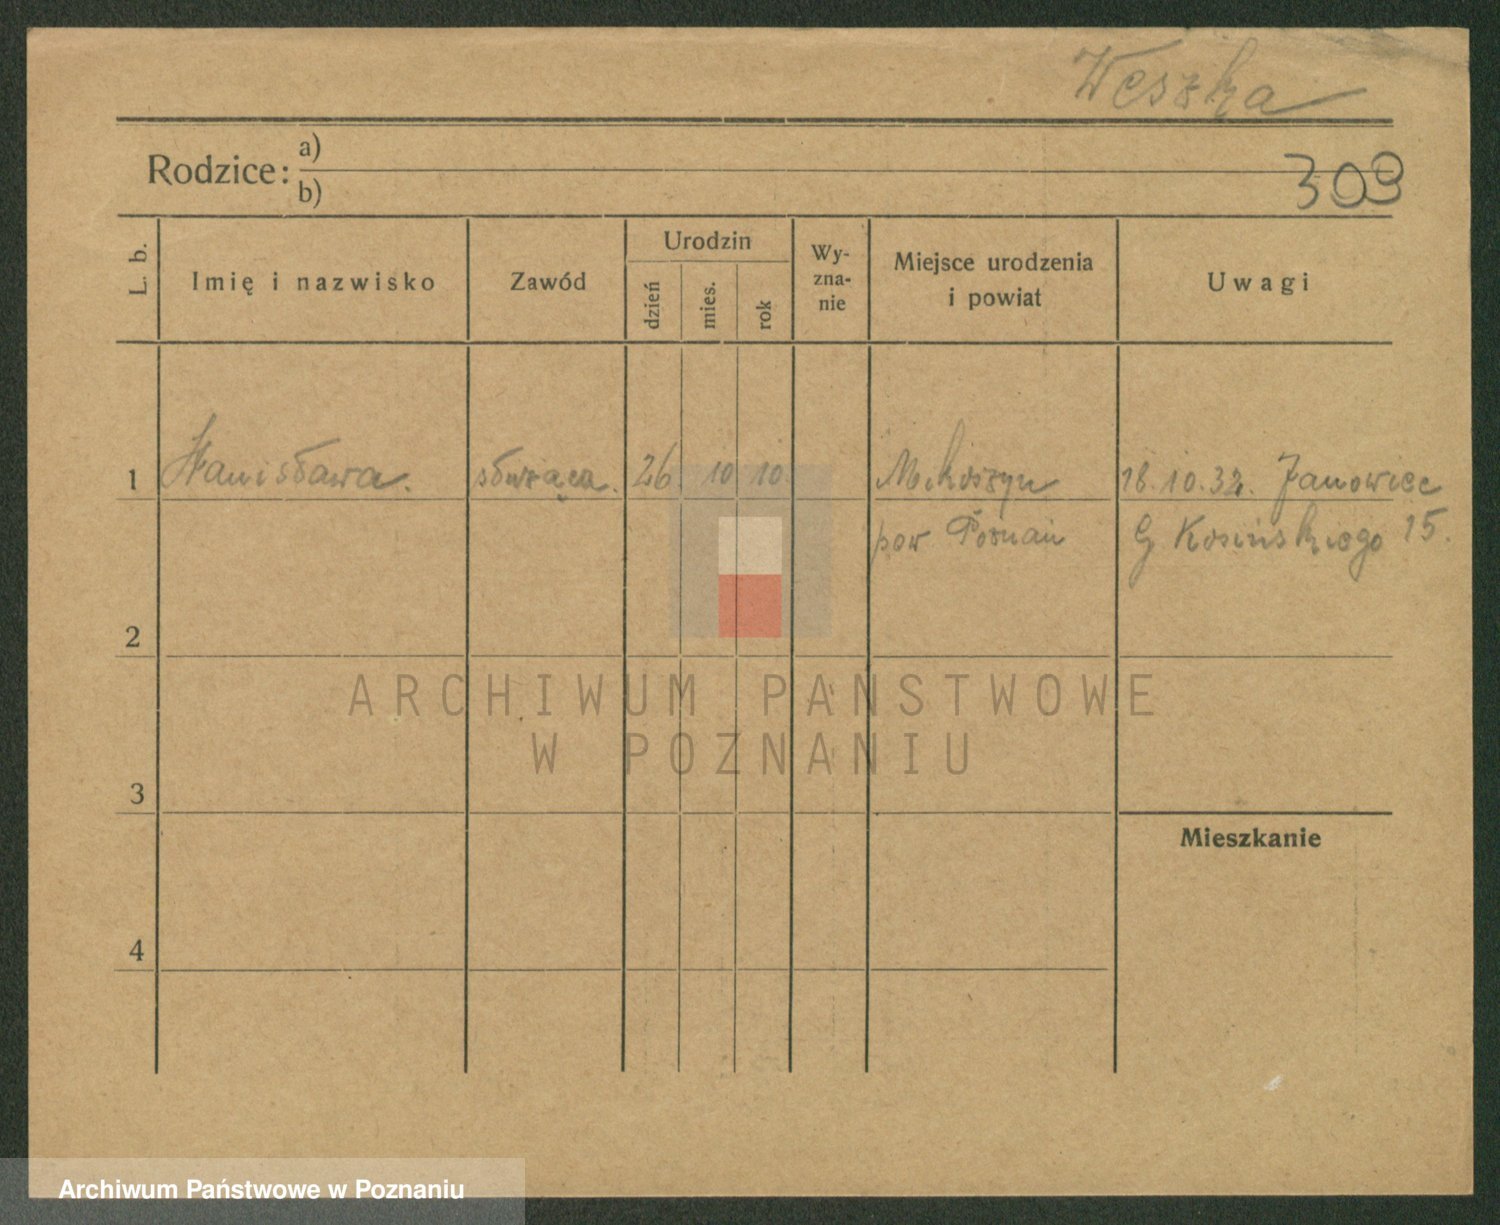 Weszka
Rodzice: a)
b)
309
L. b.
Imię i nazwisko
Zawód
Urodzin
dzień
mies.
rok
Wy-
zna-
nie
Miejsce urodzenia
i powiat
Uwagi
1 Stanisława. służąca. 26 10 10. 18.10.32. Janowiec
pow Poznań G Kosińskiego 15.
2
3
Mieszkanie
4
ARCHIWUM PAŃSTWOWE
W POZNANIU
Archiwum Państwowe w Poznaniu